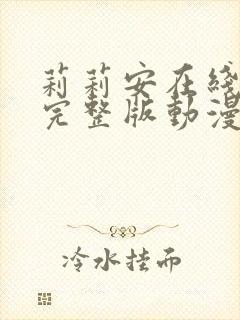 莉莉安在綫
完整版動漫
冷水挂而